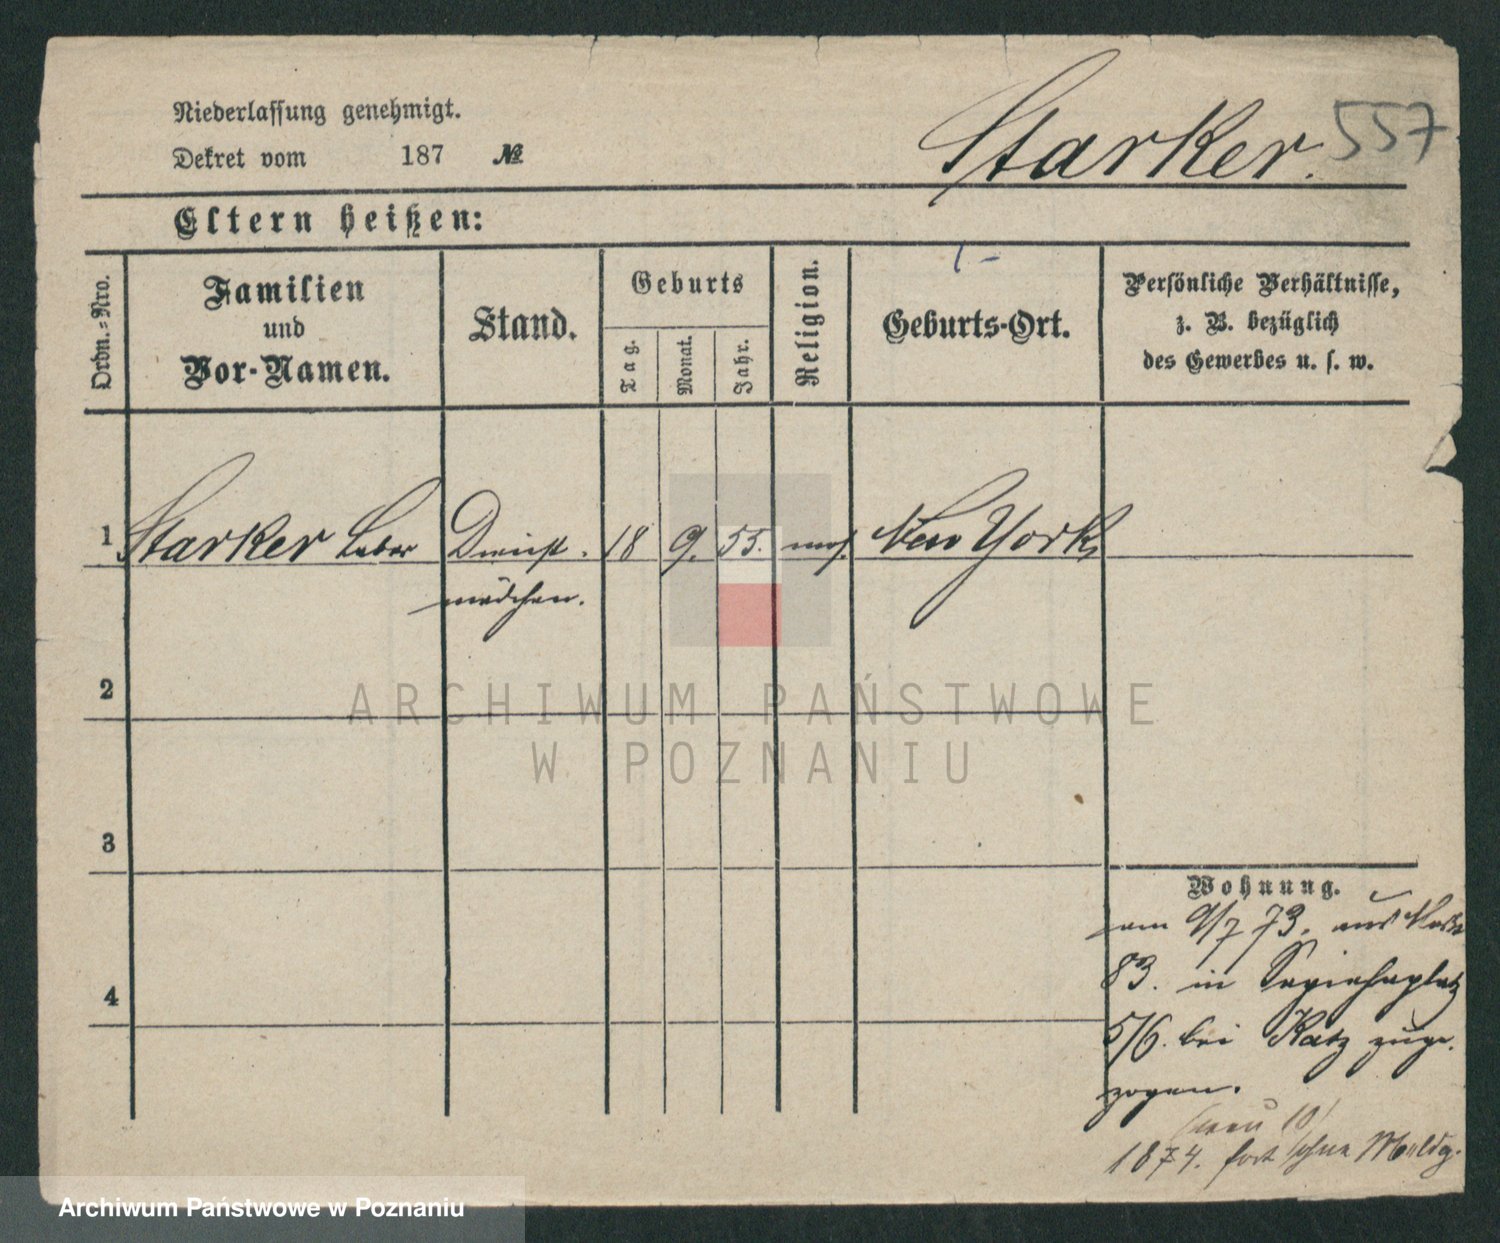 Niederlassung genehmigt.
Dekret vom 187 №
Starker.
557
Eltern heißen:
Ordn.-Nro.
Familien
und
Vor-Namen.
Stand.
Geburts
Tag.
Monat.
Jahr.
Religion.
Geburts-Ort.
Persönliche Verhältnisse,
z. B. bezüglich
des Gewerbes u. s. w.
1 Starker Dienst. 18 9. 55. mos. New York
mädchen.
2
3
4
Wohnung.
am 9/7 73. aus
83. in Sapiehaplatz
5/6. bei Katz zuge-
zogen.
1874. fort ohne Meldg.
ARCHIWUM PAŃSTWOWE
W POZNANIU
Archiwum Państwowe w Poznaniu